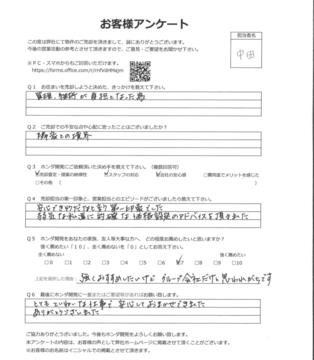 お客様アンケート
担当者名
中田
この度は弊社にて物件のご売却を頂きまして、誠にありがとうございます。
今後の営業活動の参考とさせて頂きますので、ご意見・ご要望をお聞かせ下さい。
※PC・スマホからもご回答いただけます。
Q1 お住まいを売却しようと決めた、きっかけを教えて下さい。
管理、維持が負担となった為
Q2 ご売却での不安な点や心配に思ったことはございましたか?
隣家との境界
Q3 ホンダ開発にご依頼頂いた決め手を教えて下さい。(複数回答可)
売却査定・提案の納得性
スタッフの対応
会社の安心感
□費用面でメリットを感じた
□その他(
)
Q4 売却担当の第一印象と、営業担当とのエピソードがございましたら教えて下さい。
安心できる方だなと言う第一印象でした
Q5 ホンダ開発をあなたの家族、友人等大事な方へ、どの程度お薦めしたいと思いますか?
強く薦めたい「10」、全く薦めない「0」としてお答え下さい。
全く薦めない
強く薦めたい
□0 □1 □2 □3 □4 □5 □6 7 □8 □9 □10
上記を選択した理由:
強くおすすめしたいけど グループ会社だけと思われがちです
Q6 最後にホンダ開発に一言またはご要望等があればお願い致します。
とてもていねいな仕事で安心しておまかせできました
ありがとうございました
ご協力ありがとうございました。今後もホンダ開発をよろしくお願い致します。
本アンケートの内容は、お客様の声として弊社ホームページに掲載させて頂くことがございます。
※お客様のお名前はイニシャルでの掲載とさせて頂きます。